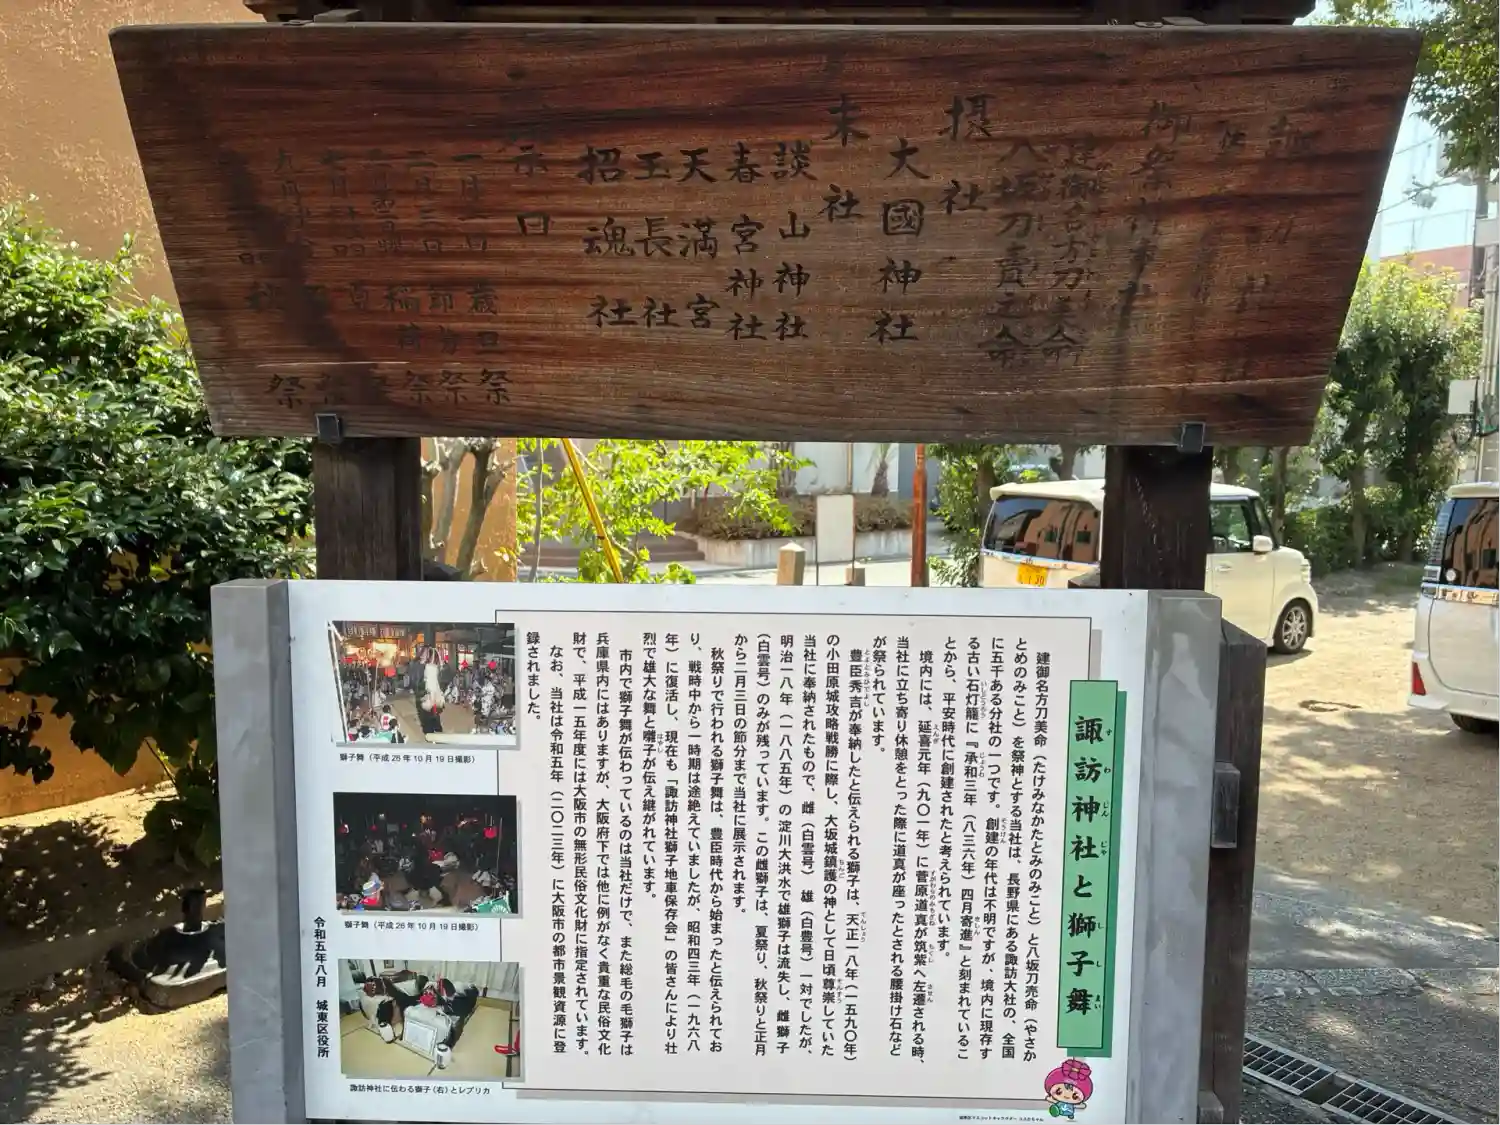 御祭神
建御名方刀美命
八坂刀賣之命
摂社
大國神社
末社
談山神社
春宮神社
天満宮
玉長社
招魂社
祭日
一月一日 歳旦祭
二月三日 節分祭
稲荷祭
祭
祭
諏訪神社と獅子舞
すわじんじゃとししまい
建御名方刀美命（たけみなかたとみのみこと）と八坂刀売命（やさか
とめのみこと）を祭神とする当社は、長野県にある諏訪大社の、全国
に五千ある分社の一つです。創建の年代は不明ですが、境内に現存す
る古い石灯籠に『承和三年（八三六年）四月寄進』と刻まれているこ
とから、平安時代に創建されたと考えられています。
境内には、延喜元年（九〇一年）に菅原道真が筑紫へ左遷される時、
当社に立ち寄り休憩をとった際に道真が座ったとされる腰掛け石など
が祭られています。
豊臣秀吉が奉納したと伝えられる獅子は、天正一八年（一五九〇年）
の小田原城攻略戦勝に際し、大坂城鎮護の神として日頃尊崇していた
当社に奉納されたもので、雌（白雲号）雄（白豊号）一対でしたが、
明治一八年（一八八五年）の淀川大洪水で雄獅子は流失し、雌獅子
（白雲号）のみが残っています。この雌獅子は、夏祭り、秋祭りと正月
から二月三日の節分まで当社に展示されます。
秋祭りで行われる獅子舞は、豊臣時代から始まったと伝えられてお
り、戦時中から一時期は途絶えていましたが、昭和四三年（一九六八
年）に復活し、現在も「諏訪神社獅子地車保存会」の皆さんにより壮
烈で雄大な舞と囃子が伝え継がれています。
市内で獅子舞が伝わっているのは当社だけで、また総毛の毛獅子は
兵庫県内にはありますが、大阪府下では他に例がなく貴重な民俗文化
財で、平成一五年度には大阪市の無形民俗文化財に指定されています。
なお、当社は令和五年（二〇二三年）に大阪市の都市景観資源に登
録されました。
獅子舞（平成26年10月19日撮影）
獅子舞（平成26年10月19日撮影）
諏訪神社に伝わる獅子（右）とレプリカ
令和五年八月 城東区役所